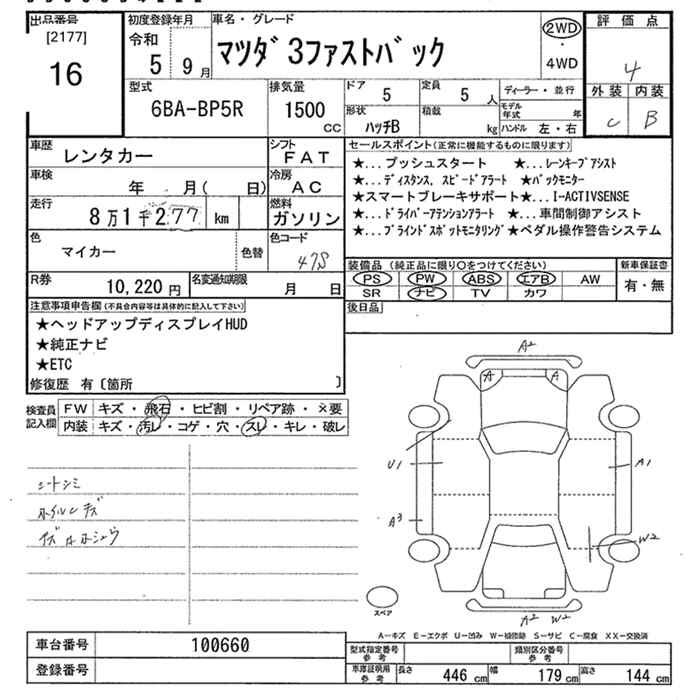 出品番号
[2177]
16
初度登録年月
令和
5 9月
車名・グレード
マツダ3ファストバック
2WD
・
4WD
評価点
4
外装 内装
C B
型式
6BA-BP5R
排気量
1500
CC
ドア
5
定員
5 人
形状
ハッチB
積載
kg
ディーラー・並行
モデル年式 年
ハンドル 左・右
車歴
レンタカー
シフト
FAT
車検
年 月( 日)
冷房
AC
走行
8万1千277 km
燃料
ガソリン
色
マイカー
色替
色コード
47S
R券
10,220円
名変通知期限
月 日
セールスポイント(正常に機能するものに限ります)
★...プッシュスタート ★...レーンキープアシスト
★...ディスタンス,スピードアラート ★バックモニター
★スマートブレーキサポート★...I-ACTIVSENSE
★...ドライバーアテンションアラート ★...車間制御アシスト
★...ブラインドスポットモニタリング★ペダル操作警告システム
装備品(純正品に限り〇をつけてください)
新車保証書
PS PW ABS エアB AW
SR ナビ TV カワ
有・無
後日品
注意事項申告欄(不具合内容等は具体的に記入して下さい)
★ヘッドアップディスプレイHUD
★純正ナビ
★ETC
修復歴 有〔箇所 〕
検査員記入欄
FW キズ・飛石・ヒビ割・リペア跡・×要
内装 キズ・汚レ・コゲ・穴・スレ・キレ・破レ
シートシミ
ホイルキズ
A2
A A
U1
A1
A3
W2
A2 W2
スペア
A-キズ E-エクボ U-凹み W-補修跡 S-サビ C-腐食 XX-交換済
車台番号
100660
登録番号
型式指定番号
参考
類別区分番号
参考
車庫証明用
参考
長さ 446 cm 幅 179 cm 高さ 144 cm